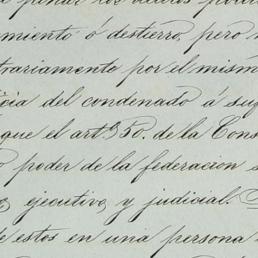 penar los
amiento ó destierro, pero n
trariamente por el mism
cia del condenado á suf
que el art. 50. de la Cons
o poder de la federacion s
o, ejecutivo y judicial.
de estos en una persona